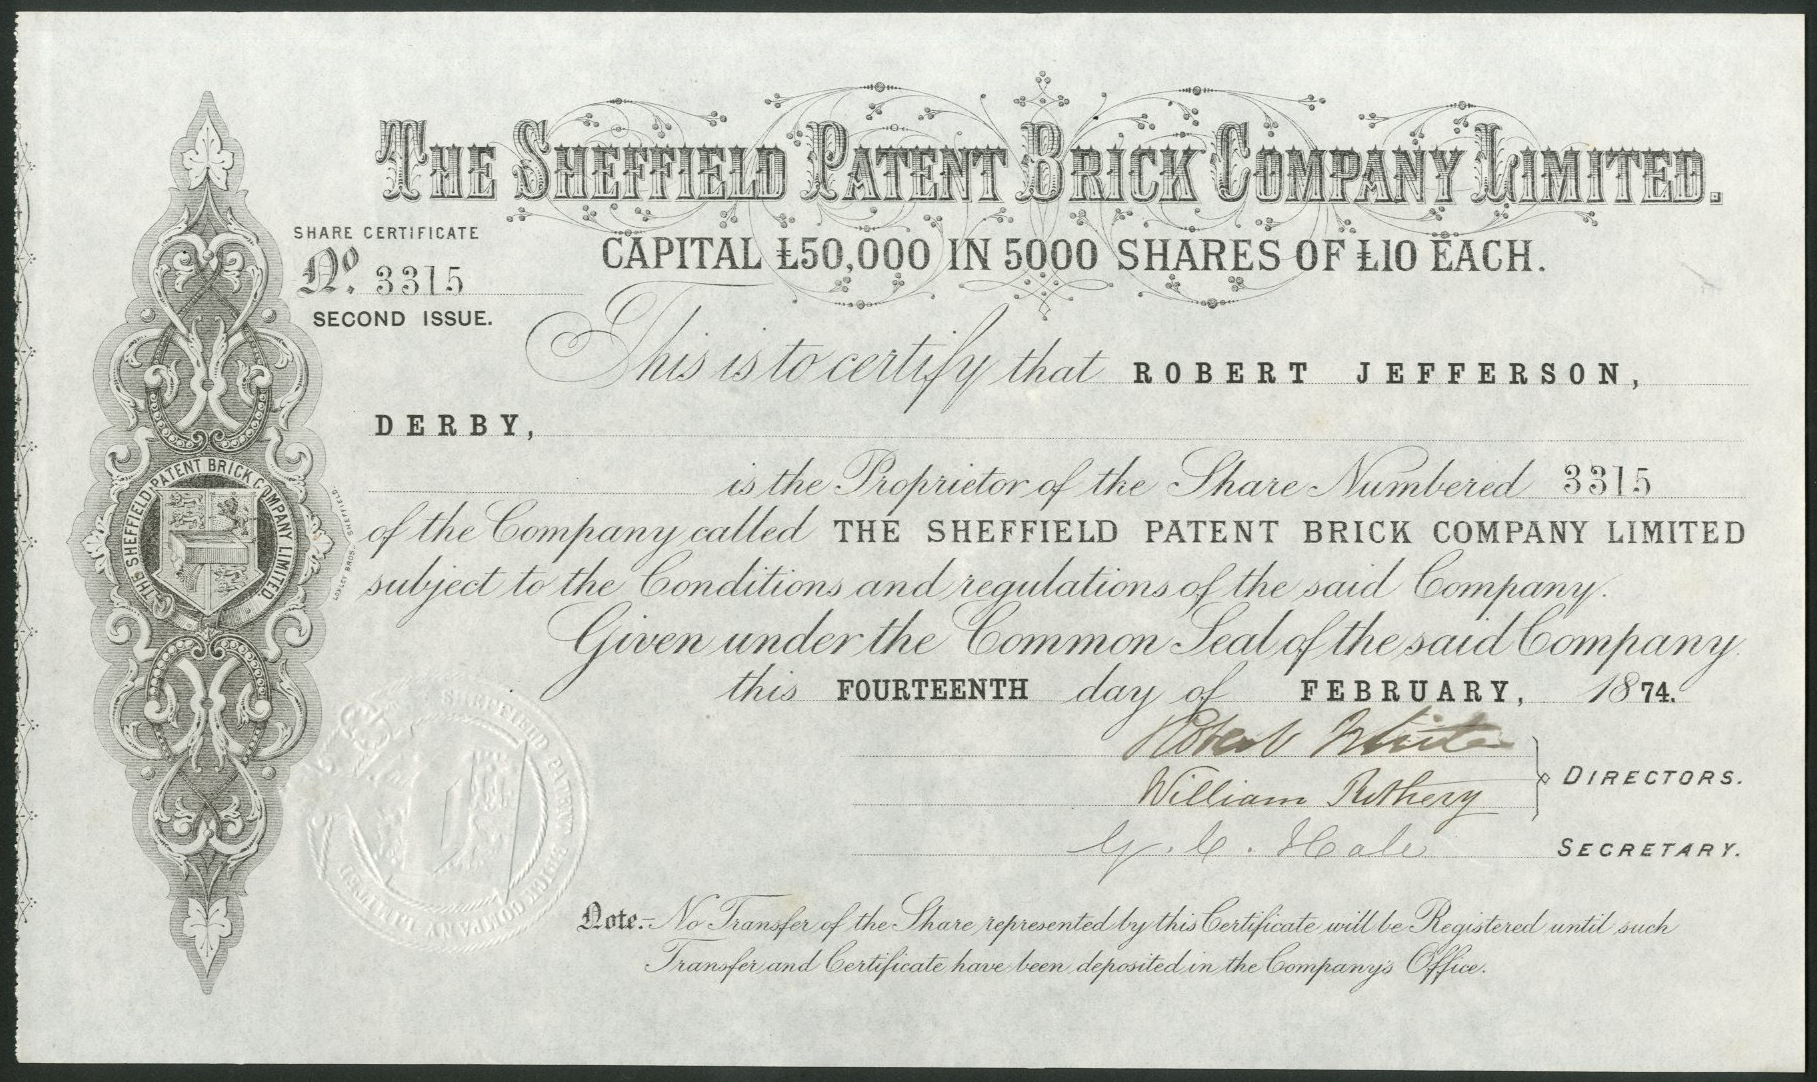 THE SHEFFIELD PATENT BRICK COMPANY LIMITED.
CAPITAL £50,000 IN 5000 SHARES OF £10 EACH.
SHARE CERTIFICATE
No. 3315
SECOND ISSUE.
This is to certify that ROBERT JEFFERSON,
DERBY,
is the Proprietor of the Share Numbered 3315
of the Company called THE SHEFFIELD PATENT BRICK COMPANY LIMITED
subject to the Conditions and regulations of the said Company.
Given under the Common Seal of the said Company
this FOURTEENTH day of FEBRUARY, 1874.
Robert White
William Rothery
DIRECTORS.
Hale
SECRETARY.
Note:- No Transfer of the Share represented by this Certificate will be Registered until such
Transfer and Certificate have been deposited in the Company's Office.
THE SHEFFIELD PATENT BRICK COMPANY LIMITED
LOXLEY BROS. SHEFFIELD.
SHEFFIELD PATENT BRICK COMPANY LIMITED